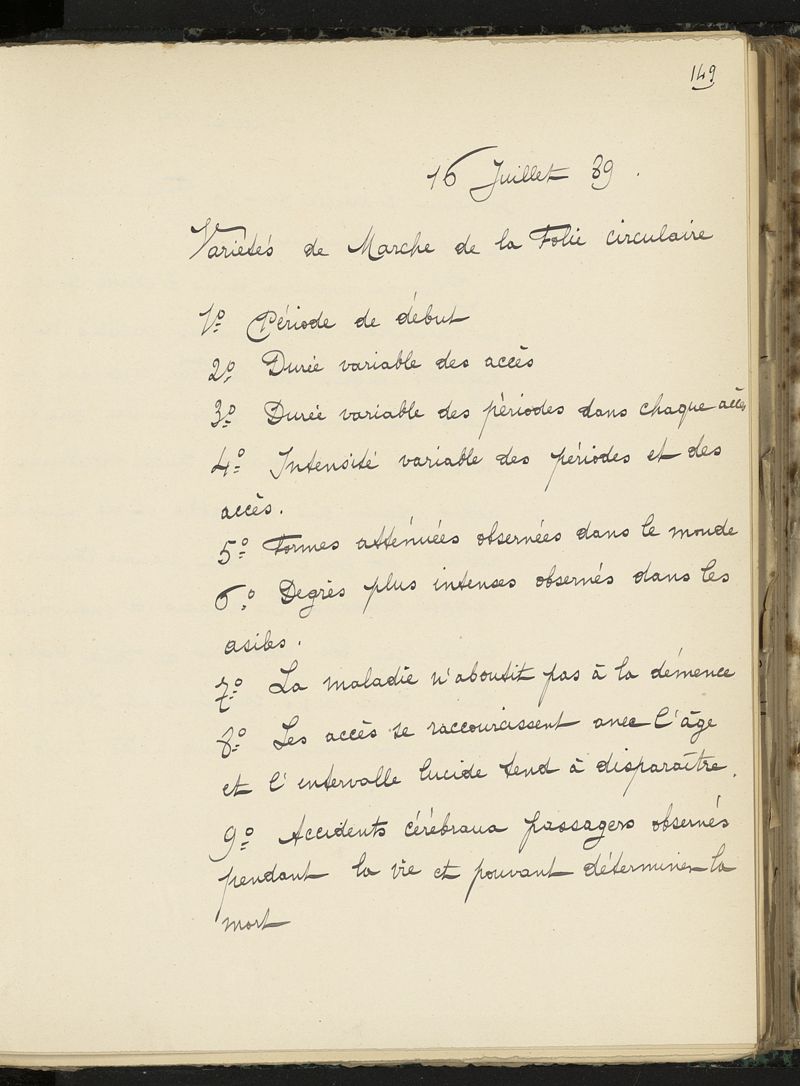 149
16 Juillet 89.
Variétés de Marche de la Folie circulaire
1º Période de début
2º Durée variable des accès
3º Durée variable des périodes dans chaque accès
4º Intensité variable des périodes et des
accès.
5º Formes atténuées observées dans le monde
6º Degrès plus intenses observés dans les
asiles.
7º La maladie n'aboutit pas à la démence
8º Les accès se raccourcissent avec l'âge
et l'intervalle lucide tend à disparaître.
9º Accidents cérébraux passagers observés
pendant la vie et pouvant déterminer la
mort